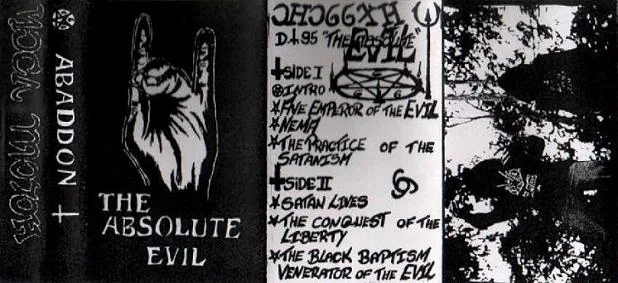 ABADDON
THE
ABSOLUTE
EVIL
D.†95 "THE ABSOLUTE"
EVIL
†SIDE I
INTRO
*EMPEROR OF THE EVIL
*NEMA
*THE PRACTICE OF THE
SATANISM
†SIDE II
*SATAN LIVES
*THE CONQUEST OF THE
LIBERTY
*THE BLACK BAPTISM
VENERATOR OF THE EVIL